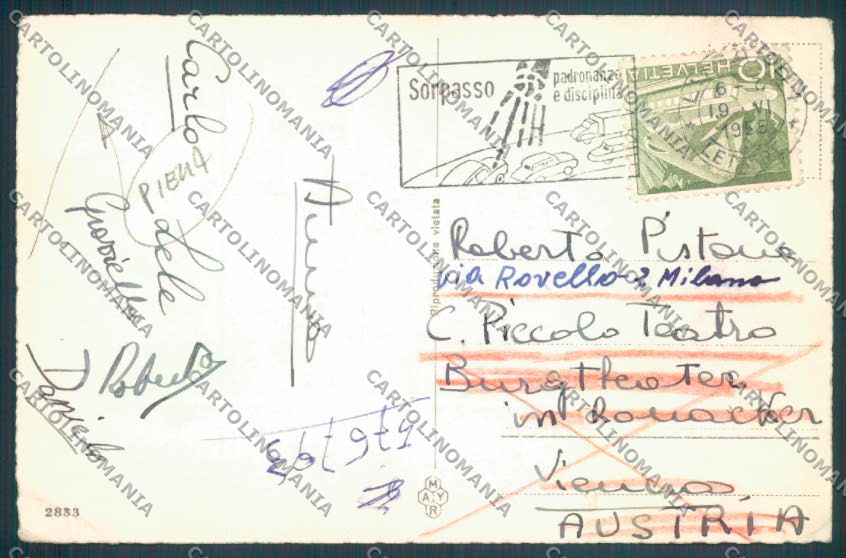 Carlo
PIENA
Gioviello
Roberto
Daniela
Sorpasso
padronanza
e disciplina
HELVETIA
6
19. VI
1955
Riproduzione vietata
Roberto Pistone
via Rovello 2 Milano
C. Piccolo Teatro
Burgtheater
in Ronacher
Vienna
AUSTRIA
MAYR
2833
CARTOLINOMANIA